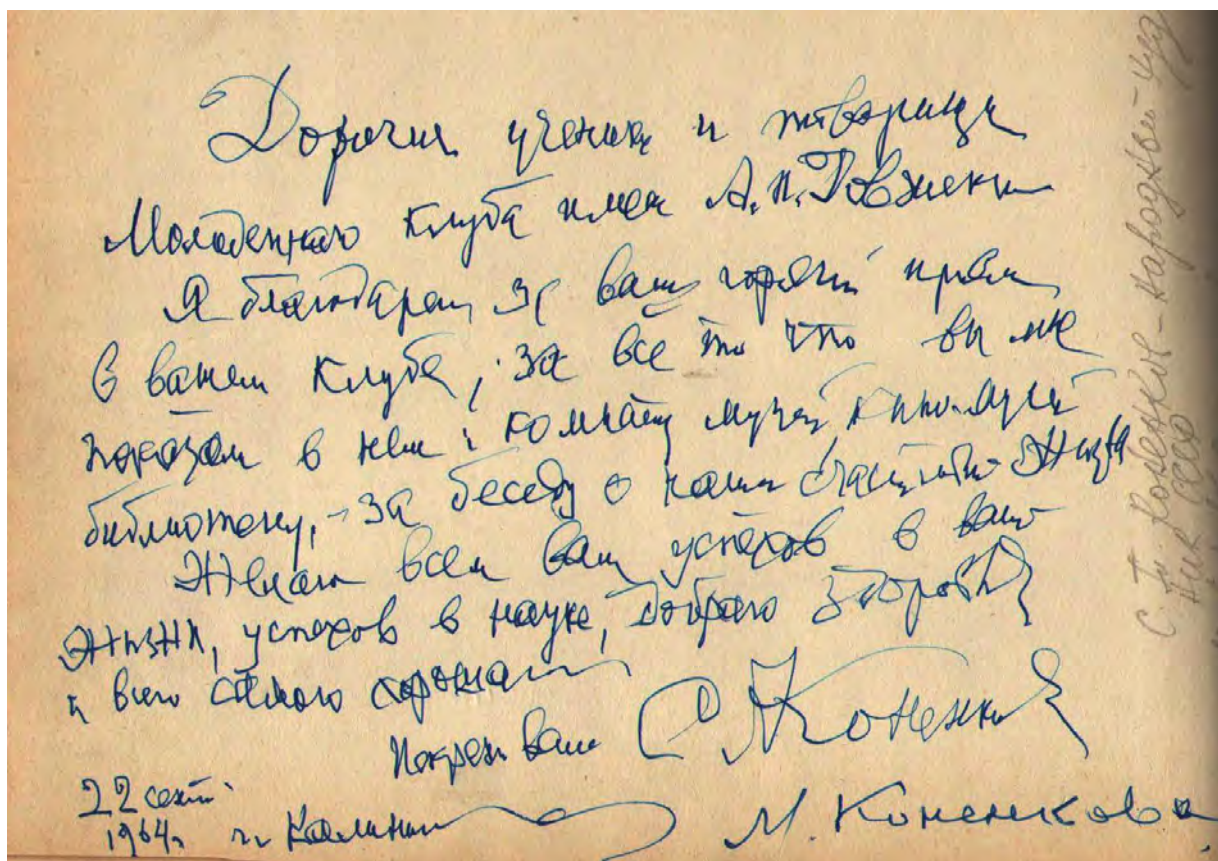 Дорогие ученики и товарищи
Молодежнаго Клуба имен А. П. Довженки
Я благодарен за ваш горячий прием
в вашем Клубе, за все то что вы мне
показали в нем: комнату музей, кино-музей
библиотеку, - за беседу о нашей счастливой жизни
Желаю всем вам успехов в вашей
жизни, успехов в науке, добраго здоровья
и всего самого хорошаго
Искрен ваш С. Коненков
22 сент.
1964 г. г. Калинин
М. Коненкова
С. Т. Коненков - Народный худ
ник СССР